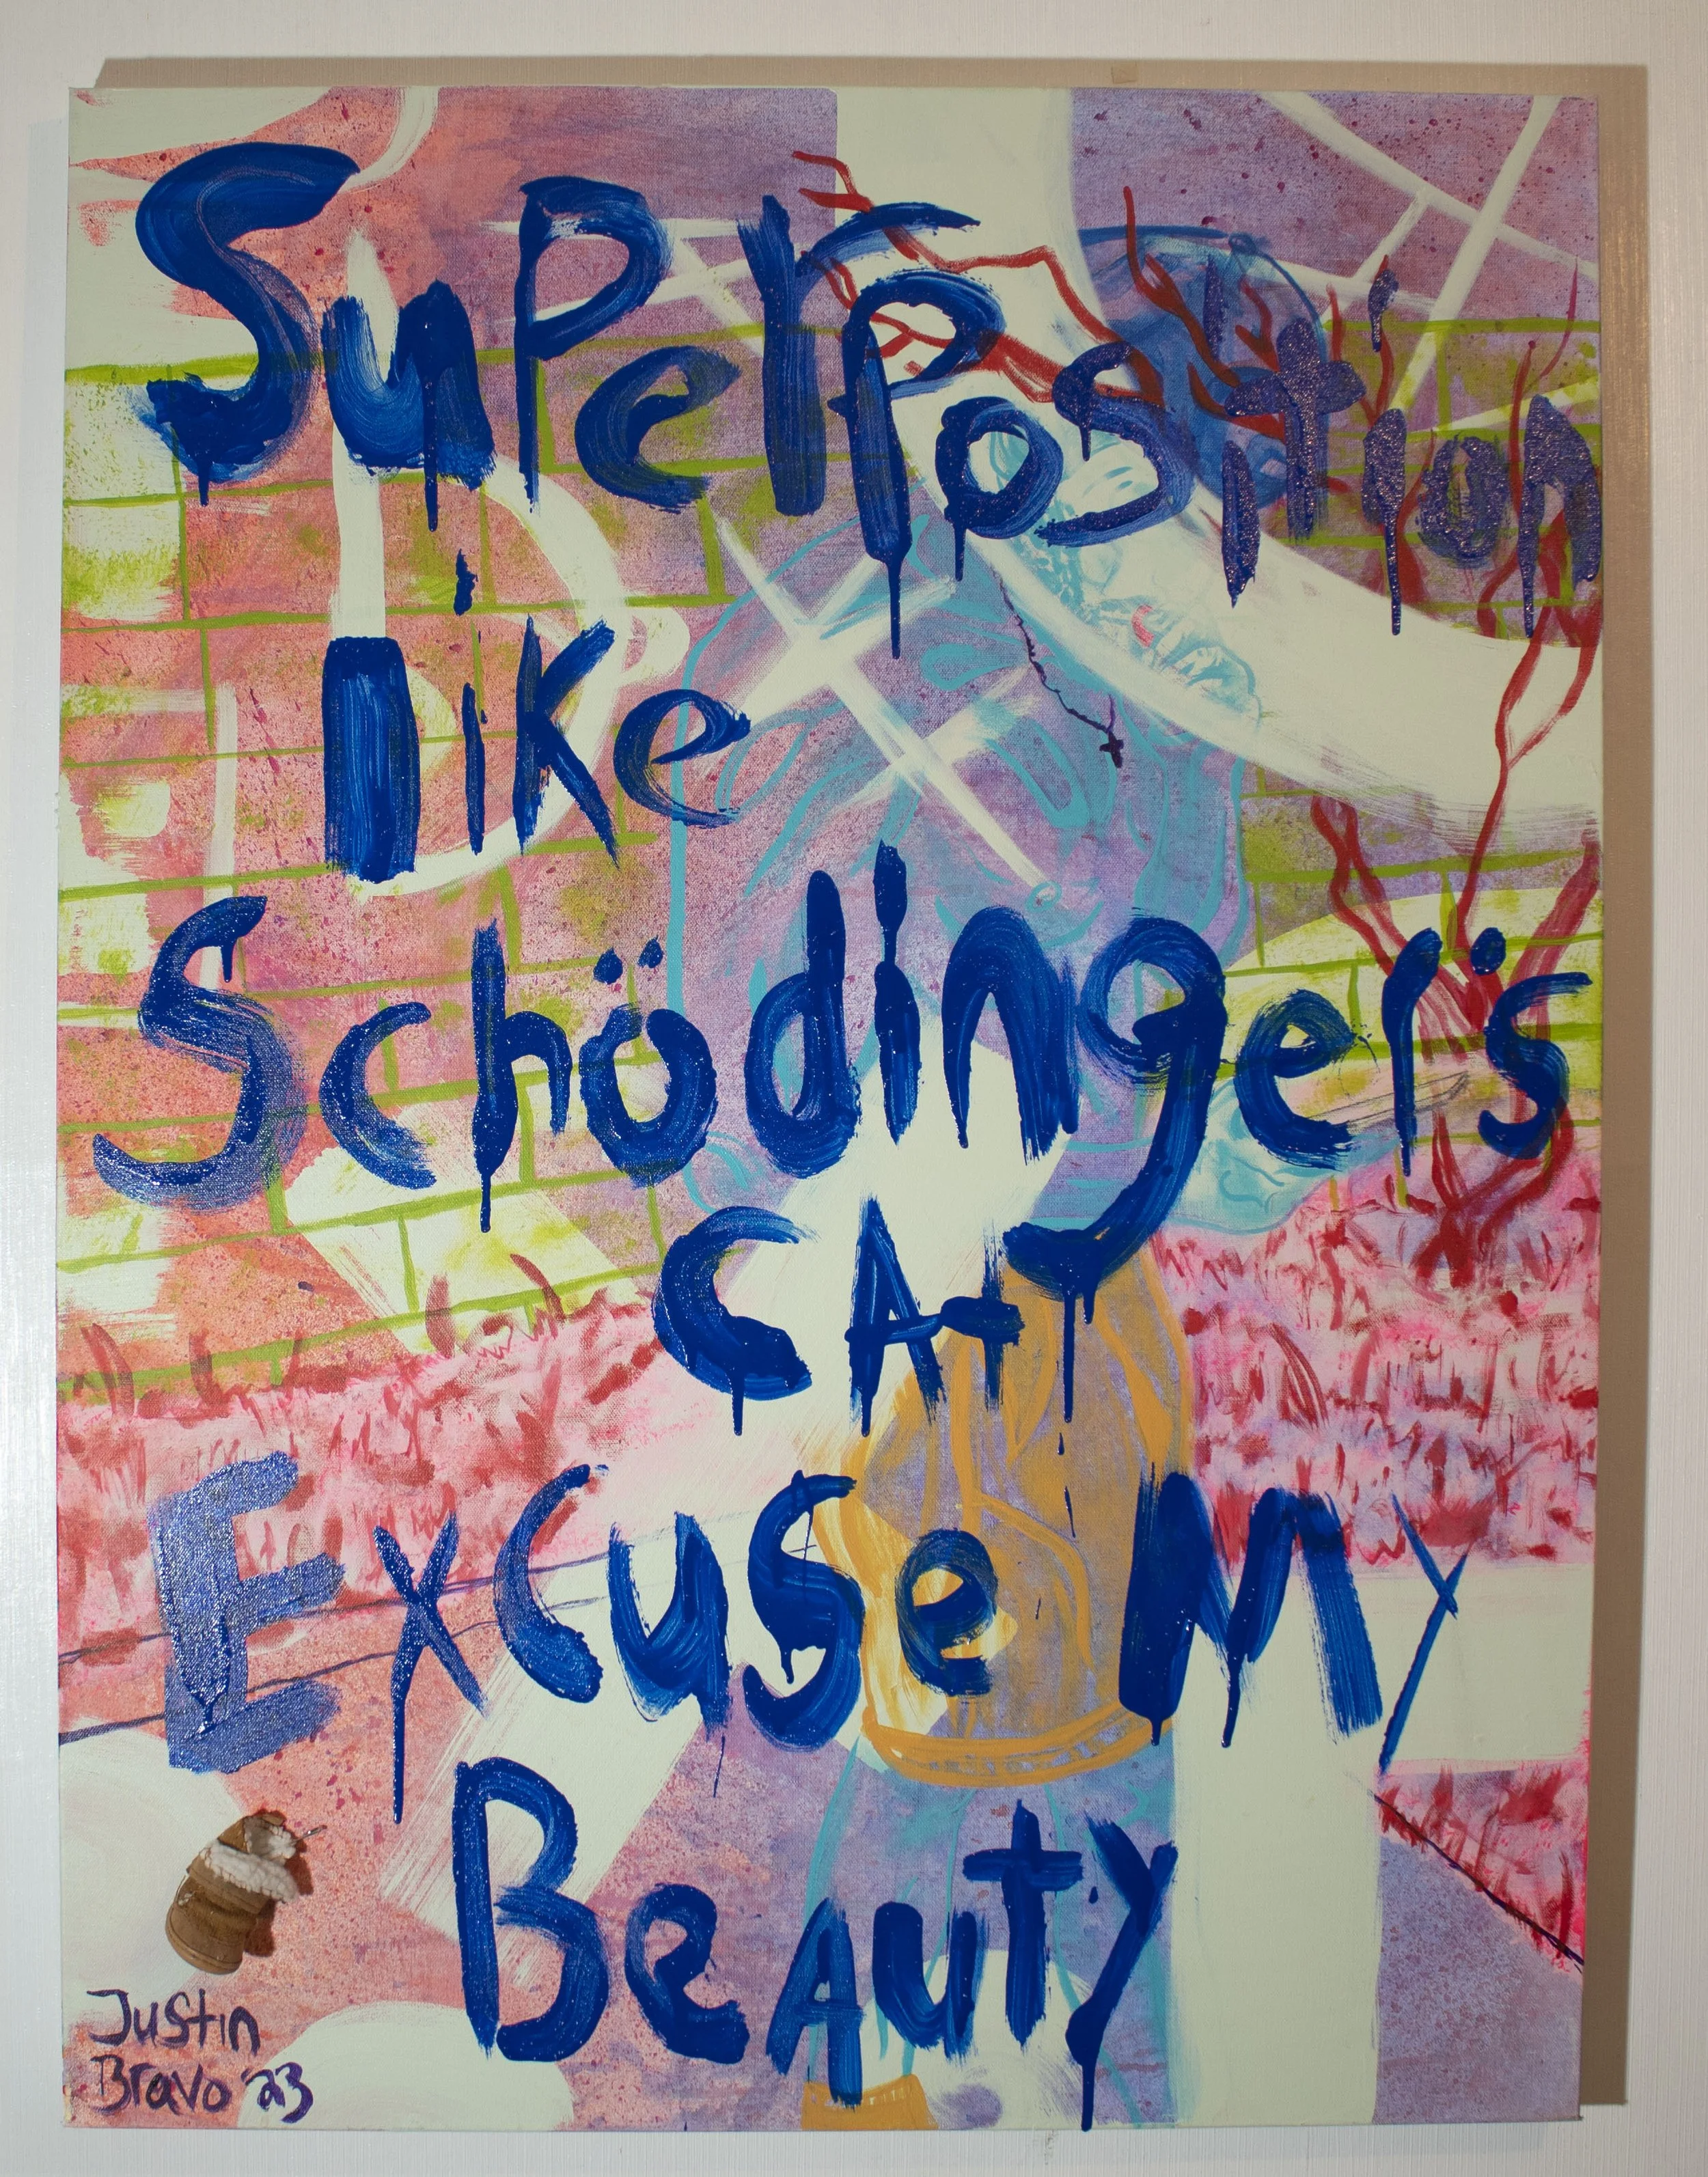 SuperPosition
like
Schödinger's
CAt
Excuse My
Beauty
Justin
Bravo '23